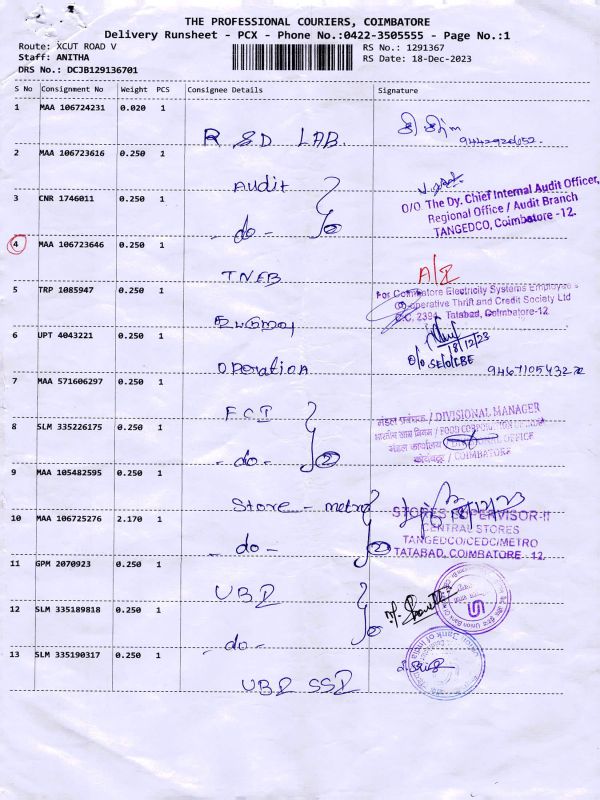 THE PROFESSIONAL COURIERS, COIMBATORE
Delivery Runsheet - PCX - Phone No.:0422-3505555 - Page No.:1
Route: XCUT ROAD V
RS No.: 1291367
Staff: ANITHA
RS Date: 18-Dec-2023
DRS No.: DCJB129136701
S No Consignment No Weight PCS Consignee Details Signature
1 MAA 106724231 0.020 1
R &D LAB.
2 MAA 106723616 0.250 1
Audit
3 CNR 1746011 0.250 1
O/O The Dy. Chief Internal Audit Officer,
Regional Office / Audit Branch
TANGEDCO, Coimbatore -12.
- do -
4 MAA 106723646 0.250 1
TNEB
5 TRP 1085947 0.250 1
For Coimbatore Electricity Systems Employee's
Co-operative Thrift and Credit Society Ltd
C.C. 2394, Tatabad, Coimbatore-12
6 UPT 4043221 0.250 1
18/12/23
O/O SE/O/CBE
Operation
7 MAA 571606297 0.250 1
FCI
मंडल प्रबंधक / DIVISIONAL MANAGER
भारतीय खाद्य निगम / FOOD CORPORATION OF INDIA
मंडल कार्यालय / DIVISIONAL OFFICE
कोयंबत्तूर / COIMBATORE
8 SLM 335226175 0.250 1
- do - 2
9 MAA 105482595 0.250 1
Store - metro
STORES SUPERVISOR-II
CENTRAL STORES
TANGEDCO/CEDC/METRO
TATABAD, COIMBATORE - 12.
10 MAA 106725276 2.170 1
- do - 2
11 GPM 2070923 0.250 1
UBI
12 SLM 335189818 0.250 1
- do -
13 SLM 335190317 0.250 1
UBI SSI